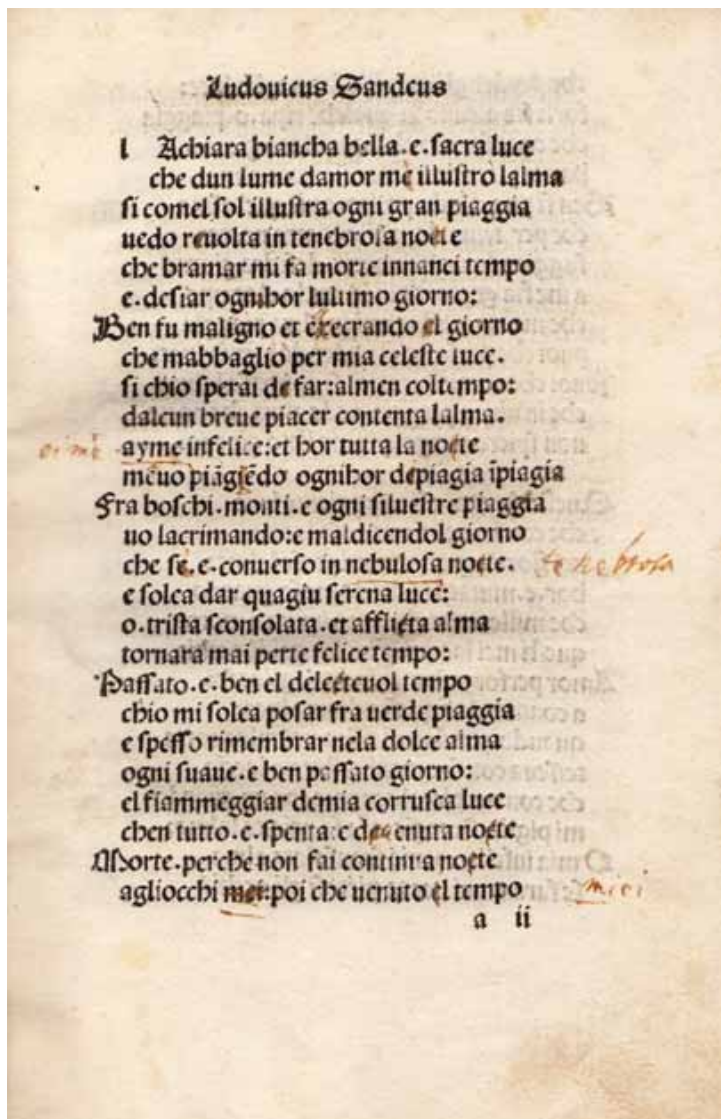 Ludouicus Sandeus
l Achiara biancha bella .e. sacra luce
che dun lume damor me illustro lalma
si comel sol illustra ogni gran piaggia
uedo reuolta in tenebrosa nocte
che bramar mi fa morte innanci tempo
e. desiar ognihor lultimo giorno:
Ben fu maligno et execrando el giorno
che mabbaglio per mia celeste luce.
si chio sperai de far: almen col tempo:
dalcun breue piacer contenta lalma.
oimè ayme infelice: et hor tutta la nocte
meuo piãgiẽdo ognihor depiagia ĩpiagia
Fra boschi. monti. e ogni siluestre piaggia
uo lacrimando: e maldicendol giorno
che se .e. conuerso in nebulosa nocte. tenebrosa
e solea dar quagiu serena luce:
o. trista sconsolata. et afflicta alma
tornara mai perte felice tempo:
Passato .e. ben el delecteuol tempo
chio mi solea posar fra uerde piaggia
e spesso rimembrar nela dolce alma
ogni suaue. e ben passato giorno:
el fiammeggiar demia corrusca luce
chen tutto .e. spenta: e deuenuta nocte
Morte. perche non fai continua nocte
agliocchi mei: poi che uenuto el tempo miei
a ii